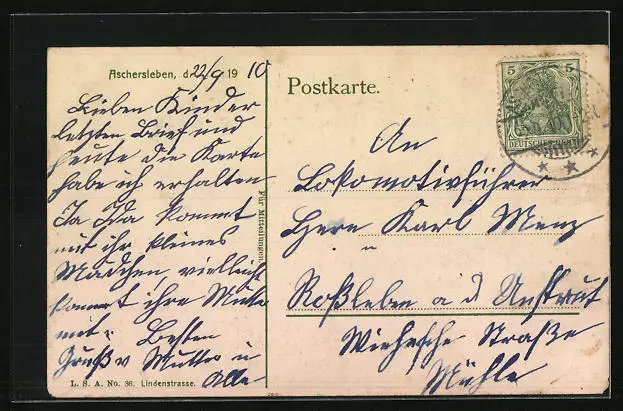 Aschersleben, d 22/9 1910
Lieben Kinder
letzten Brief und
heute die Karte
habe ich erhalten
Ja Da kommt
mit ihr kleines
Mädchen, vielleicht
kommt ihre Mutter
mit. Besten
Gruß v Mutter u
Alle
L. S. A. No. 36. Lindenstrasse.
Für Mitteilungen.
Postkarte.
5 5
DEUTSCHES REICH
An
Lokomotivführer
Herr Karl Menz
Roßleben a d Unstrut
Wiehesche Straße
Mühle